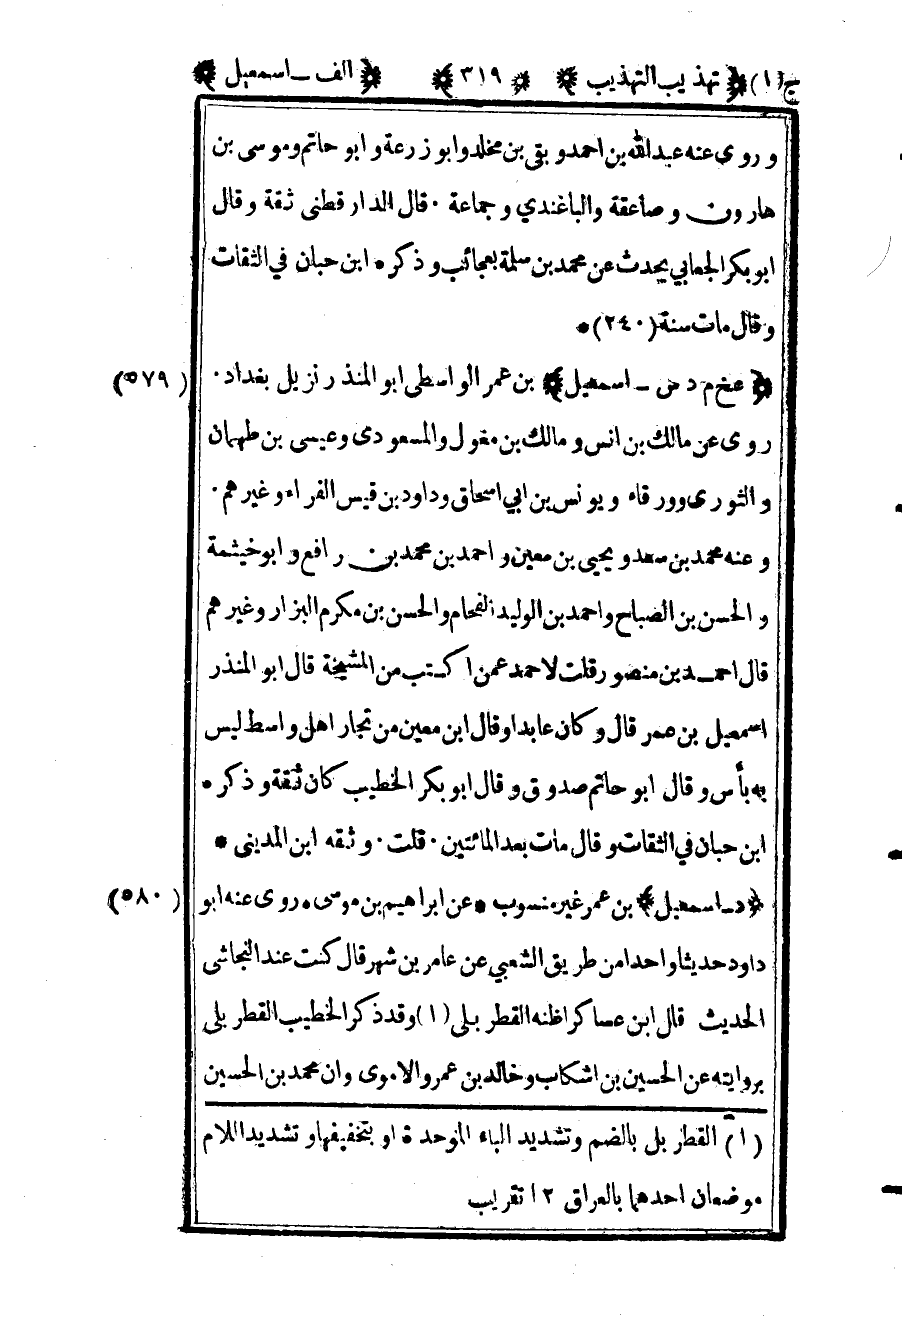 ج (١) ﴿ تهذيب التهذيب ﴾ ﴿ ٣١٩ ﴾ ﴿ الف ـ اسمعيل ﴾
وروى عنه عبدالله بن احمد وبقى بن مخلد وابو زرعة وابو حاتم وموسى بن
هارون وصاعقة والباغندي وجماعة ٠ قال الدارقطنى ثقة وقال
ابو بكر الجعابي يحدث عن محمد بن سلمة بعجائب وذكره ابن حبان في الثقات
وقال مات سنة (٢٤٠)٭
﴿ عخ م د س ـ اسمعيل ﴾ بن عمر الواسطى ابو المنذر نزيل بغداد ٠ (٥٧٩)
روى عن مالك بن انس ومالك بن مغول والمسعودى وعيسى بن طهمان
والثورى وورقاء ويونس بن ابي اسحاق وداود بن قيس الفراء وغيرهم ٠
وعنه محمد بن سعد ويحيى بن معين واحمد بن محمد بن رافع وابو خيثمة
والحسن بن الصباح واحمد بن الوليد الفحام والحسن بن مكرم البزار وغيرهم
قال احمد بن منصور قلت لاحمد عمن اكتب من المشيخة قال ابو المنذر
اسمعيل بن عمر قال وكان عابدا وقال ابن معين من تجار اهل واسط ليس
به بأس وقال ابو حاتم صدوق وقال ابو بكر الخطيب كان ثقة وذكره
ابن حبان في الثقات وقال مات بعد المائتين ٠ قلت ٠ وثقه ابن المدينى ٭
﴿ د ـ اسمعيل ﴾ بن عمر غير منسوب ٭ عن ابراهيم بن موسى ٭ روى عنه ابو (٥٨٠)
داود حديثا واحدا من طريق الشعبي عن عامر بن شهر قال كنت عند النجاشى
الحديث قال ابن عساكر اظنه القطربلى (١) وقد ذكر الخطيب القطربلى
بروايته عن الحسين بن اشكاب وخالد بن عمرو الاموى وان محمد بن الحسين
(١) القطربل بالضم وتشديد الباء الموحدة او بتخفيفها وتشديد اللام
موضعان احدهما بالعراق ١٢ تقريب